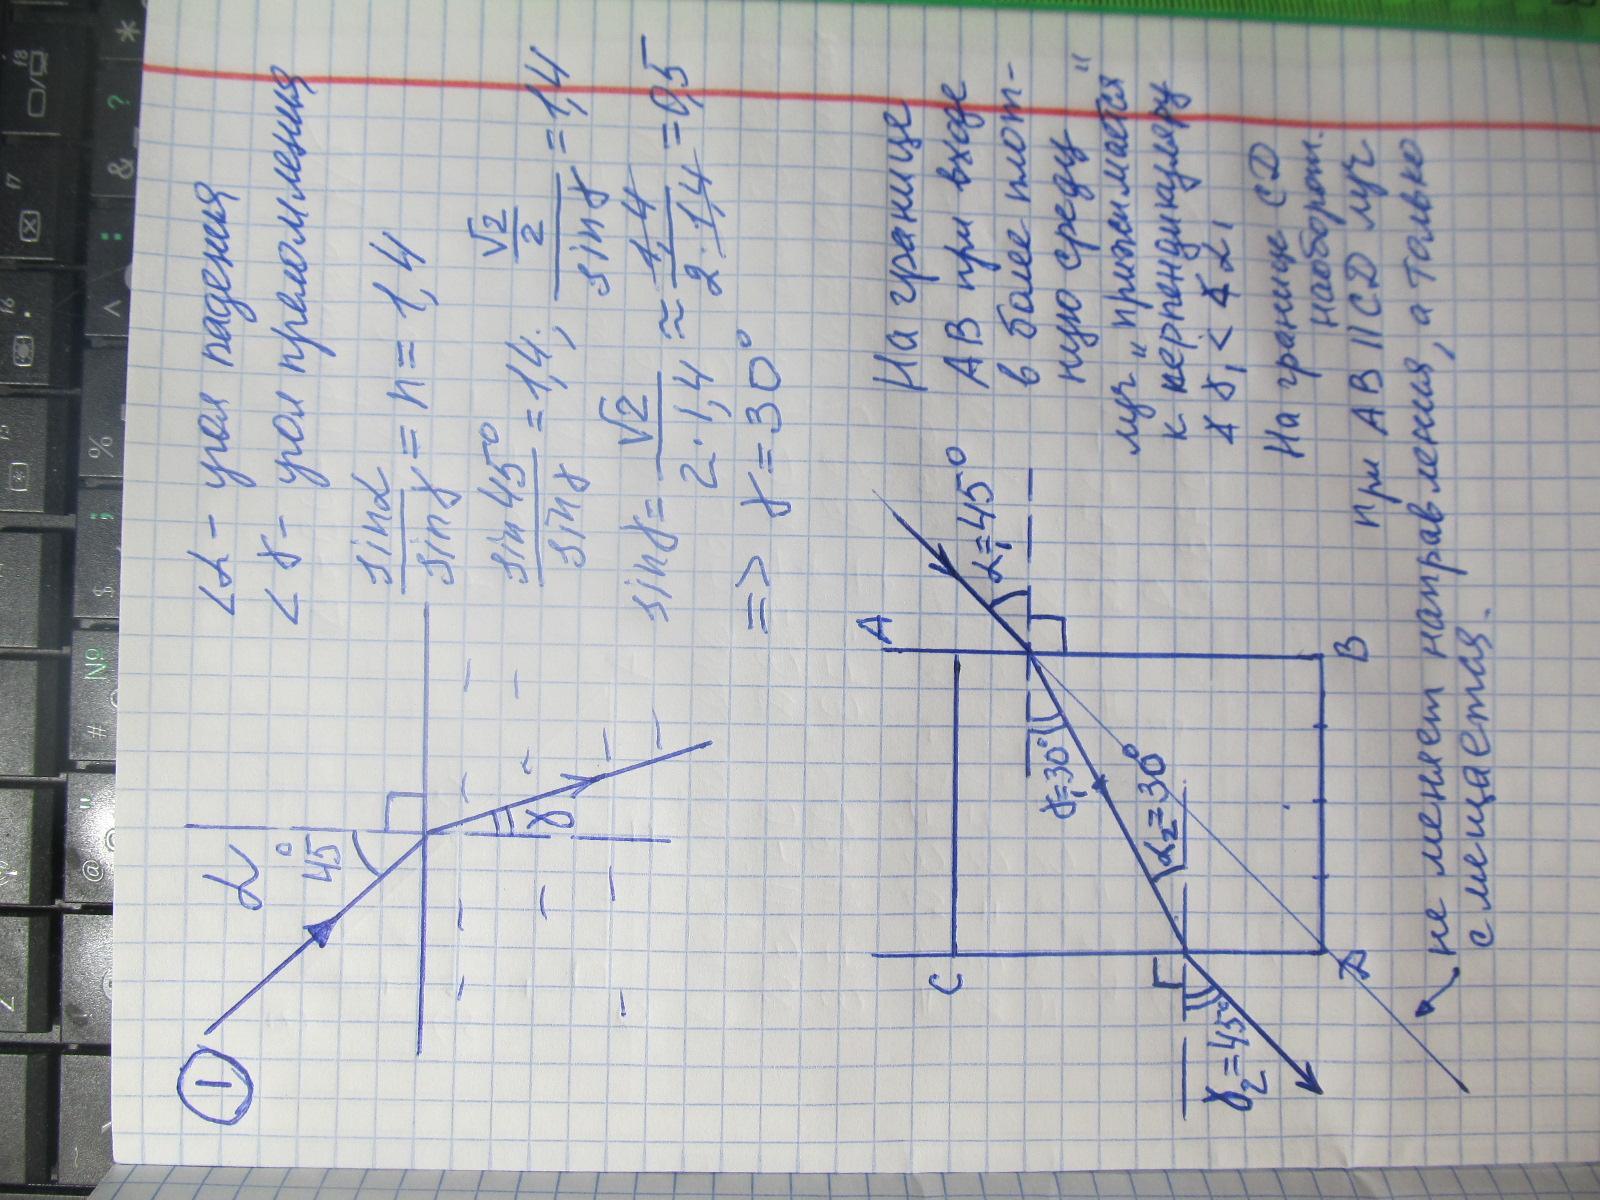 ①
∠α - угол падения
∠γ - угол преломления
α
45°
γ
sinα / sinγ = n = 1,4
sin45° / sinγ = 1,4; (√2/2) / sinγ = 1,4
sinγ = √2 / 2·1,4 ≈ 1,4 / 2·1,4 = 0,5
=> γ = 30°
На границе
AB при входе
в более плот-
ную среду
луч "прижимается"
к перпендикуляру
∡γ₁ < ∡α₁
На границе CD
наоборот.
при AB || CD луч
не меняет направления, а только
смещается.
A
B
C
D
α₁=45°
γ₁=30°
α₂=30°
γ₂=45°